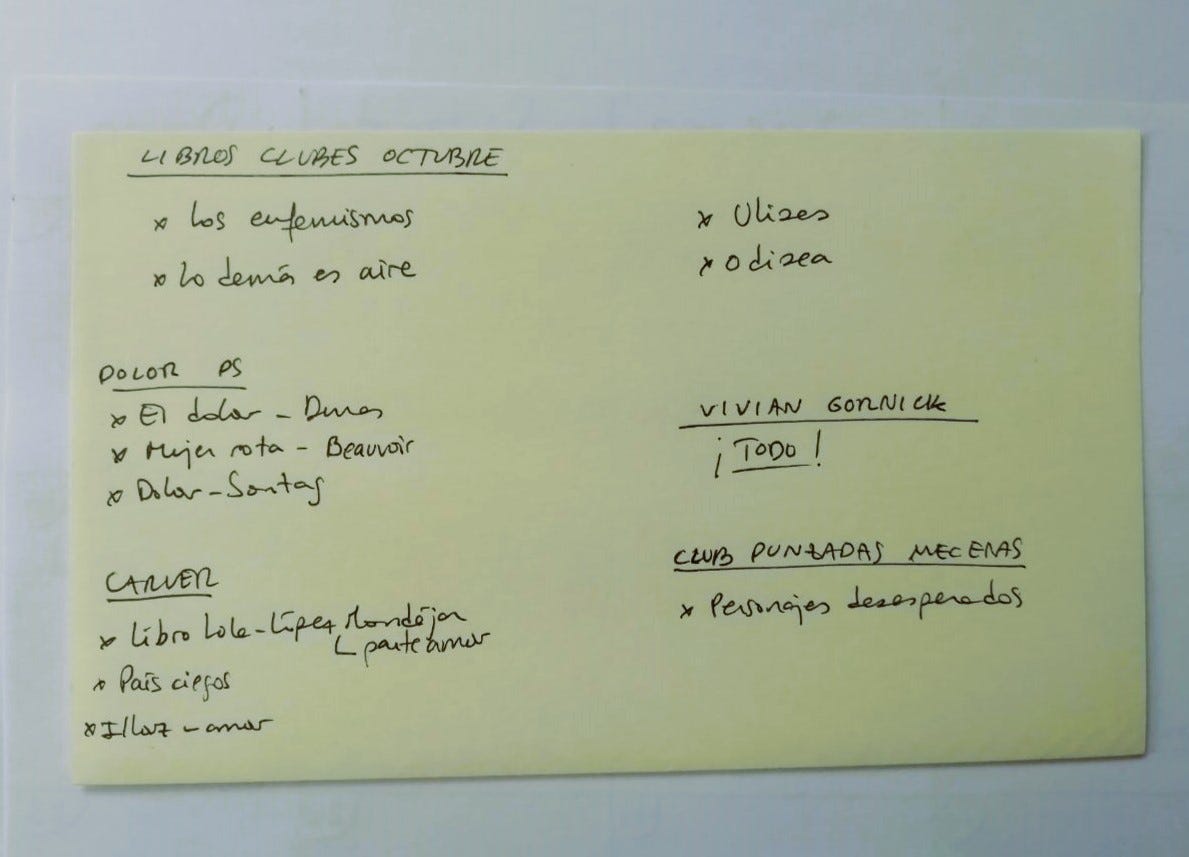 LIBROS CLUBES OCTUBRE
* Los eufemismos
* Lo demás es aire
* Ulises
* Odisea
DOLOR PS
* El dolor - Duras
* Mujer rota - Beauvoir
* Dolor - Sontag
VIVIAN GORNICK
¡TODO!
CARVER
* Libro Lola - López Mondéjar
parte amor
* País ciegos
* Illouz - amor
CLUB PUNZADAS MECENAS
* Personajes desesperados